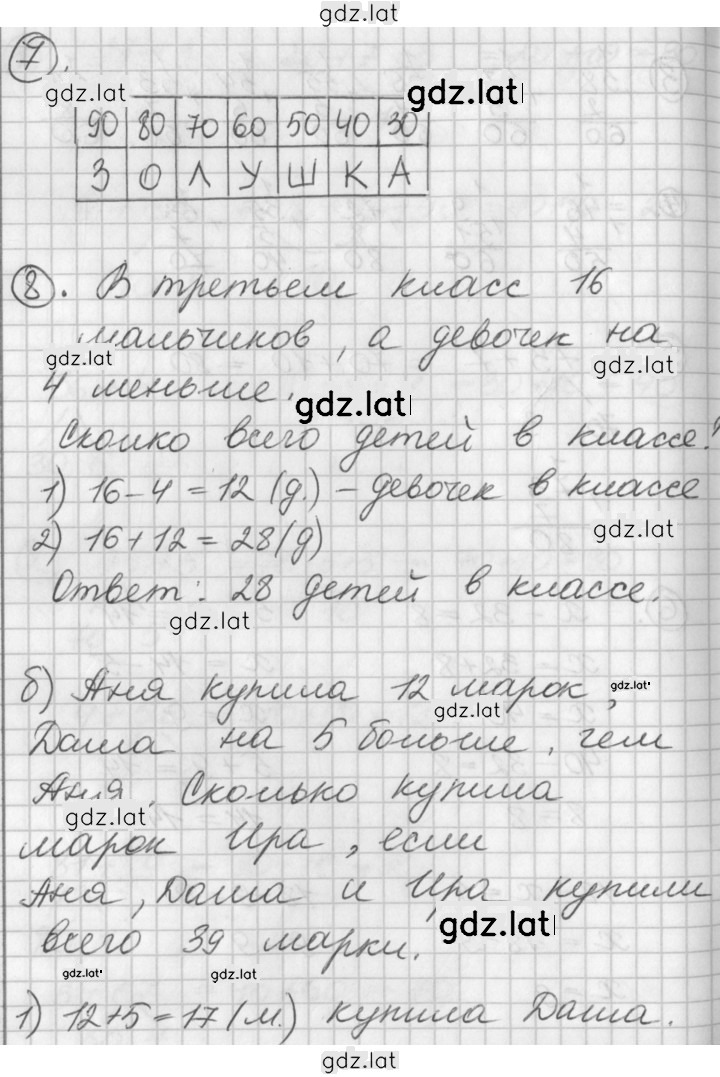 gdz.lat
7.
gdz.lat gdz.lat
90 80 70 60 50 40 30
З О Л У Ш К А
8. В третьем класс 16
мальчиков, а девочек на
gdz.lat gdz.lat
4 меньше.
gdz.lat
Сколко всего детей в классе?
1) 16-4=12 (д.) - девочек в классе
gdz.lat
2) 16+12=28(д)
Ответ: 28 детей в классе.
gdz.lat
б) Аня купила 12 марок,
gdz.lat gdz.lat
Даша на 5 больше, чем
Аня. Сколько купила
gdz.lat
марок Ира, если
Аня, Даша и Ира купили
всего 39 марки.
gdz.lat
gdz.lat gdz.lat
1) 12+5=17(м.) купила Даша.
gdz.lat